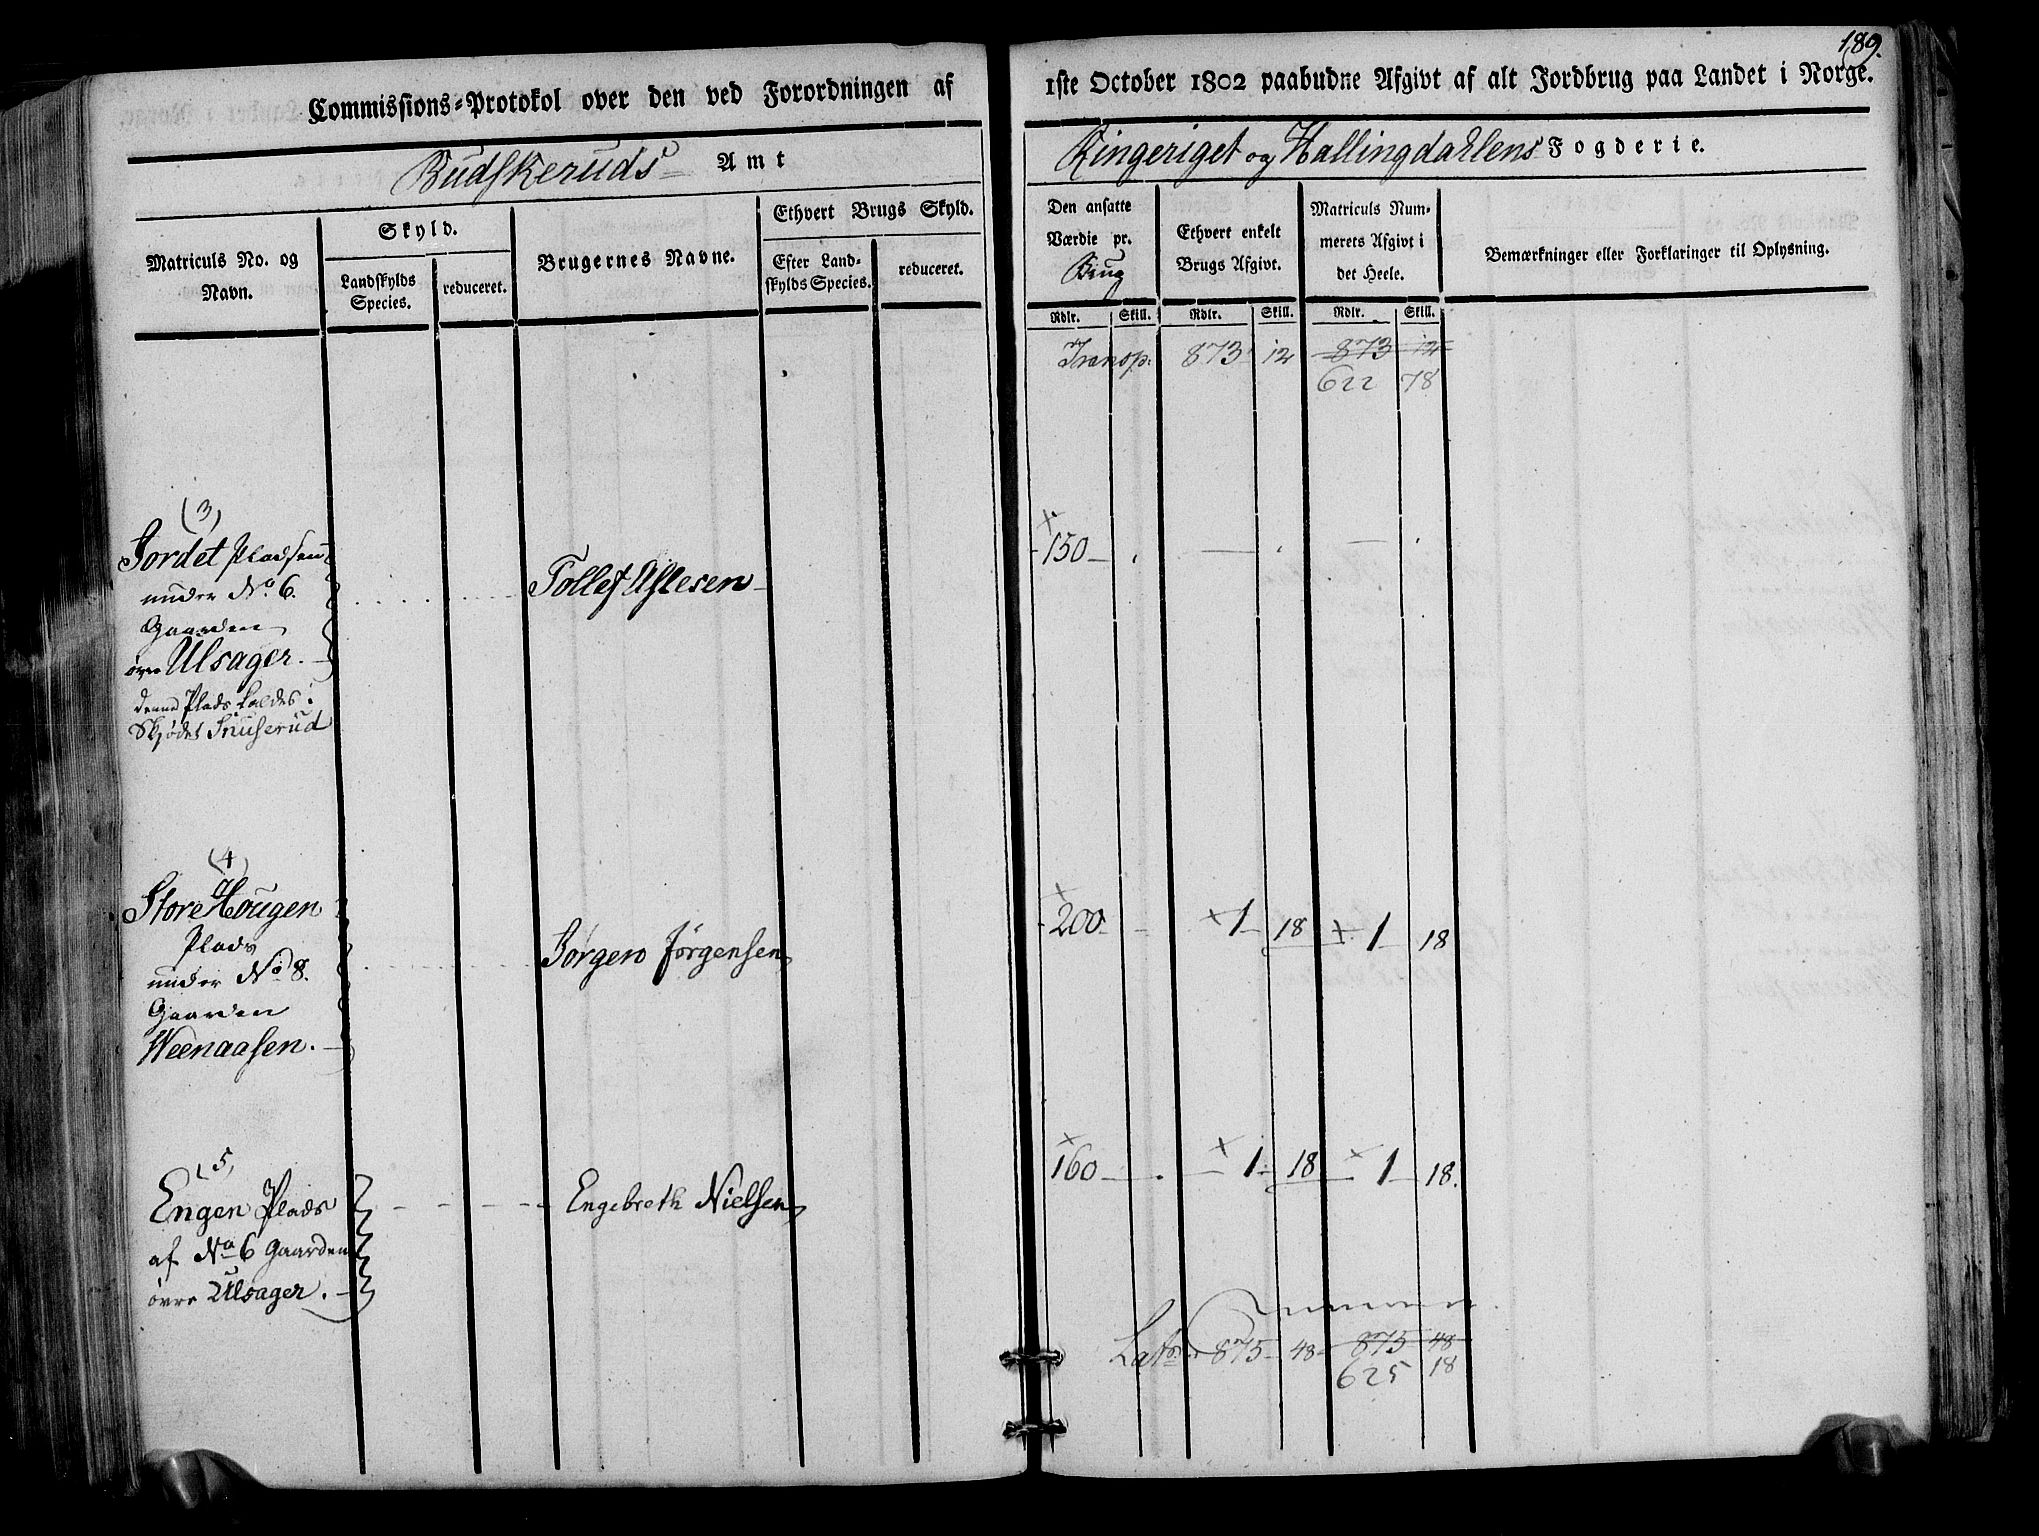 Commissions-Protokol over den ved Forordningen af
Budskeruds Amt
Matriculs No. og Navn.
Skyld.
Landskylds Species.
reduceret.
Brugernes Navne.
Ethvert Brugs Skyld.
Efter Landskylds Species.
reduceret.
(3)
Jordet Pladsen
under No. 6.
Gaarden
øvre Ulsager.
denne Plads kaldes i
Skjødet Snuserud
Tollef Aslesen
(4)
Store Hougen
Plads
under No 8.
Gaarden
Weenaasen.
Jørgen Jørgensen
(5)
Engen Plads
af No 6 Gaarden
øvre Ulsager.
Engebreth Nielsen
189.
1ste October 1802 paabudne Afgivt af alt Jordbrug paa Landet i Norge.
Ringeriget og Hallingdahlens Fogderie.
Den ansatte Værdie pr. Brug
Ethvert enkelt Brugs Afgivt.
Matriculs Nummerets Afgivt i det Heele.
Bemærkninger eller Forklaringer til Oplysning.
Rdlr. Skill. Rdlr. Skill. Rdlr. Skill.
Transp. 873 12 873 12
622 78
150
200 1 18 1 18
160 1 18 1 18.
Summa
Lats 875 48 875 48
625 18